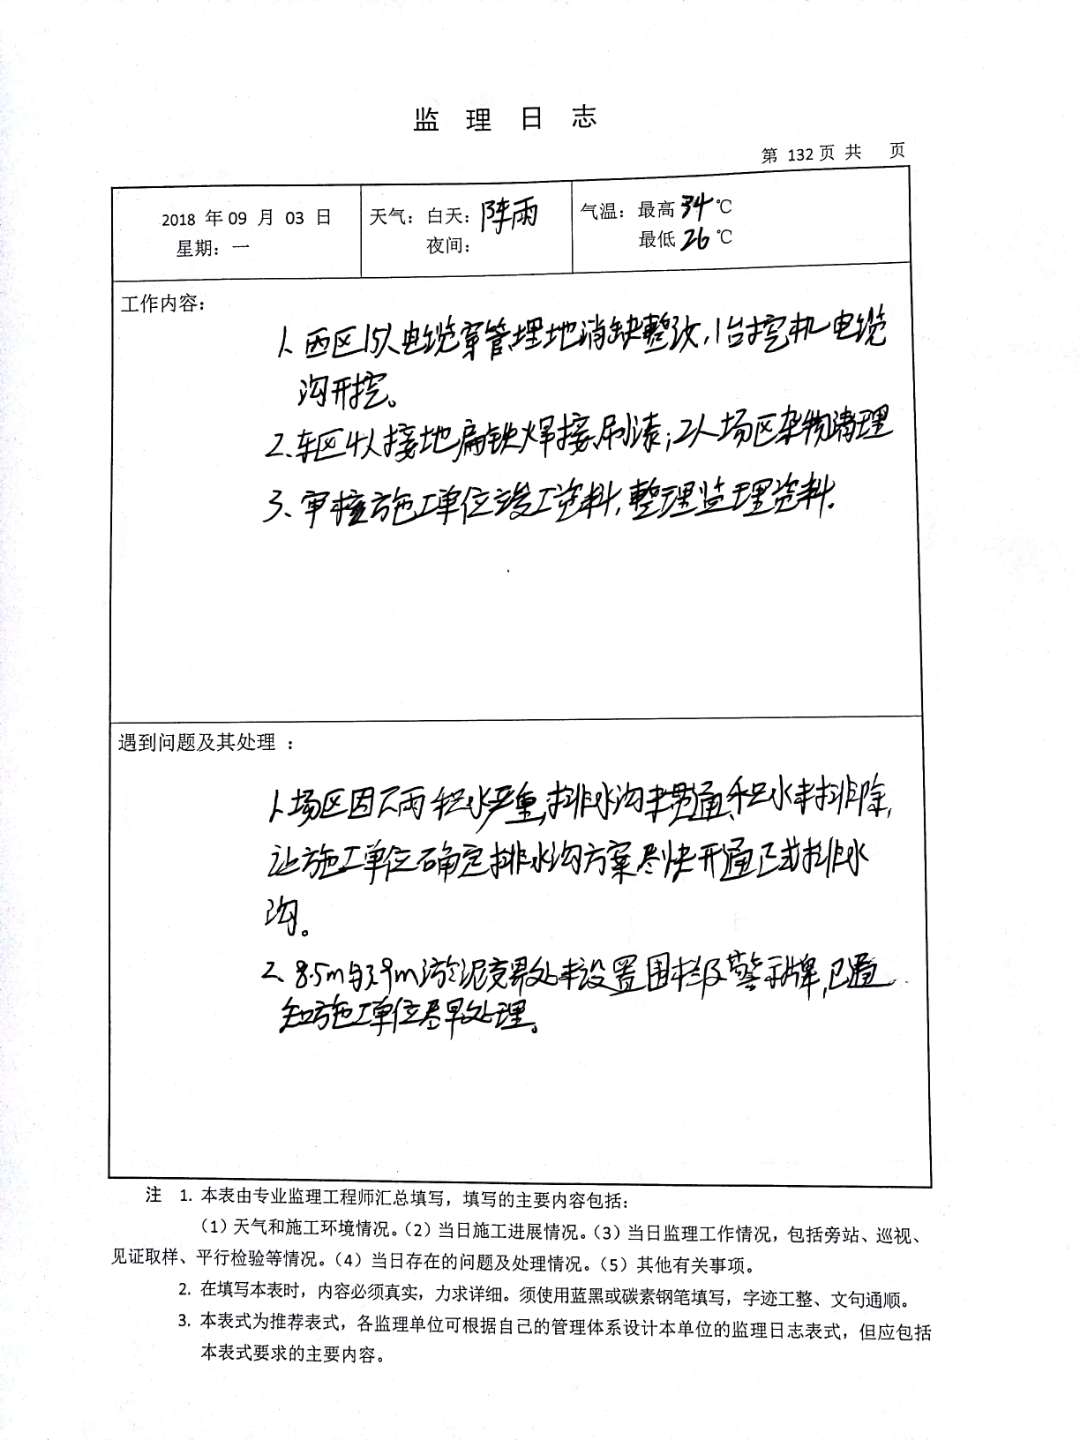 监 理 日 志
第 132 页 共 页
2018 年 09 月 03 日
星期：一
天气：白天：阵雨
夜间：
气温：最高 34 ℃
最低 26 ℃
工作内容：
1、西区15人电缆穿管埋地消缺整改，1台挖机电缆
沟开挖。
2、东区4人接地扁铁焊接刷漆；2人场区杂物清理
3、审核施工单位竣工资料，整理监理资料.
遇到问题及其处理 ：
1、场区因下雨积水严重，排水沟未贯通，积水未排除，
让施工单位确定排水沟方案尽快开通正式排水
沟。
2、8.5m与7.9m淤泥交界处未设置围栏及警示牌，已通
知施工单位尽早处理。
注 1. 本表由专业监理工程师汇总填写，填写的主要内容包括：
（1）天气和施工环境情况。（2）当日施工进展情况。（3）当日监理工作情况，包括旁站、巡视、
见证取样、平行检验等情况。（4）当日存在的问题及处理情况。（5）其他有关事项。
2. 在填写本表时，内容必须真实，力求详细。须使用蓝黑或碳素钢笔填写，字迹工整、文句通顺。
3. 本表式为推荐表式，各监理单位可根据自己的管理体系设计本单位的监理日志表式，但应包括
本表式要求的主要内容。